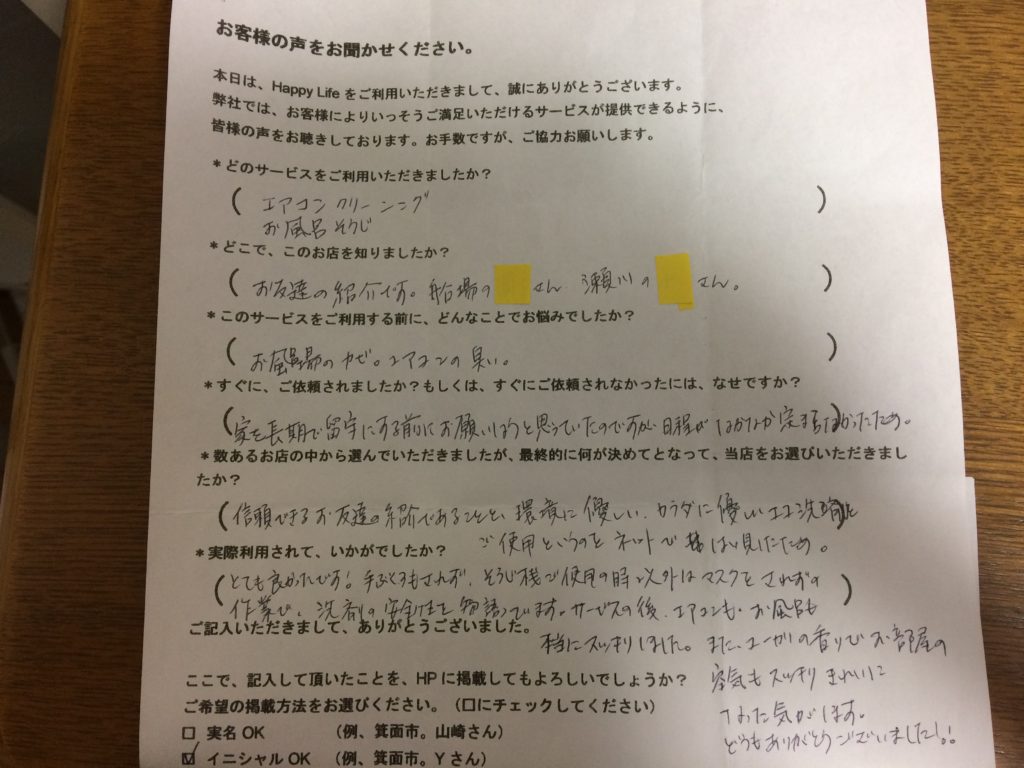 お客様の声をお聞かせください。
本日は、Happy Life をご利用いただきまして、誠にありがとうございます。
弊社では、お客様によりいっそうご満足いただけるサービスが提供できるように、
皆様の声をお聴きしております。お手数ですが、ご協力お願いします。
*どのサービスをご利用いただきましたか？
( エアコンクリーニング )
お風呂そうじ
*どこで、このお店を知りましたか？
( お友達の紹介です。船場の さん 瀬川の さん。 )
*このサービスをご利用する前に、どんなことでお悩みでしたか？
( お風呂場のカビ。エアコンの臭い。 )
*すぐに、ご依頼されましたか？もしくは、すぐにご依頼されなかったには、なぜですか？
( 家を長期で留守にする前にお願いしようと思っていたのですが日程がなかなか定まらなかったため。 )
*数あるお店の中から選んでいただきましたが、最終的に何が決めてとなって、当店をお選びいただきまし
たか？
( 信頼できるお友達の紹介であることと、環境に優しい、カラダに優しいエコ洗剤を
ご使用というのをネットで 見たため。
*実際利用されて、いかがでしたか？
( とても良かったです！手ぶくろもされず、そうじ機ご使用の時以外はマスクもされずの )
作業で、洗剤の安全性を物語っています。サービスの後、エアコンも、お風呂も
ご記入いただきまして、ありがとうございました。
本当にスッキリしました。また、ユーカリの香りでお部屋の
ここで、記入して頂いたことを、HP に掲載してもよろしいでしょうか？
空気もスッキリきれいに
ご希望の掲載方法をお選びください。（口にチェックしてください）
なった気がします。
□ 実名 OK （例、箕面市。山崎さん）
どうもありがとうございました!!
☑ イニシャル OK （例、箕面市。Y さん）